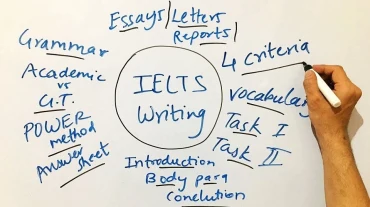 Essays/Letters
Reports/
Grammar
Academic
vs
G.T.
POWER
method
Answer
sheet
IELTS
Writing
4 criteria
Vocabulary
Task I
Task II
Introduction
Body para
Conclution